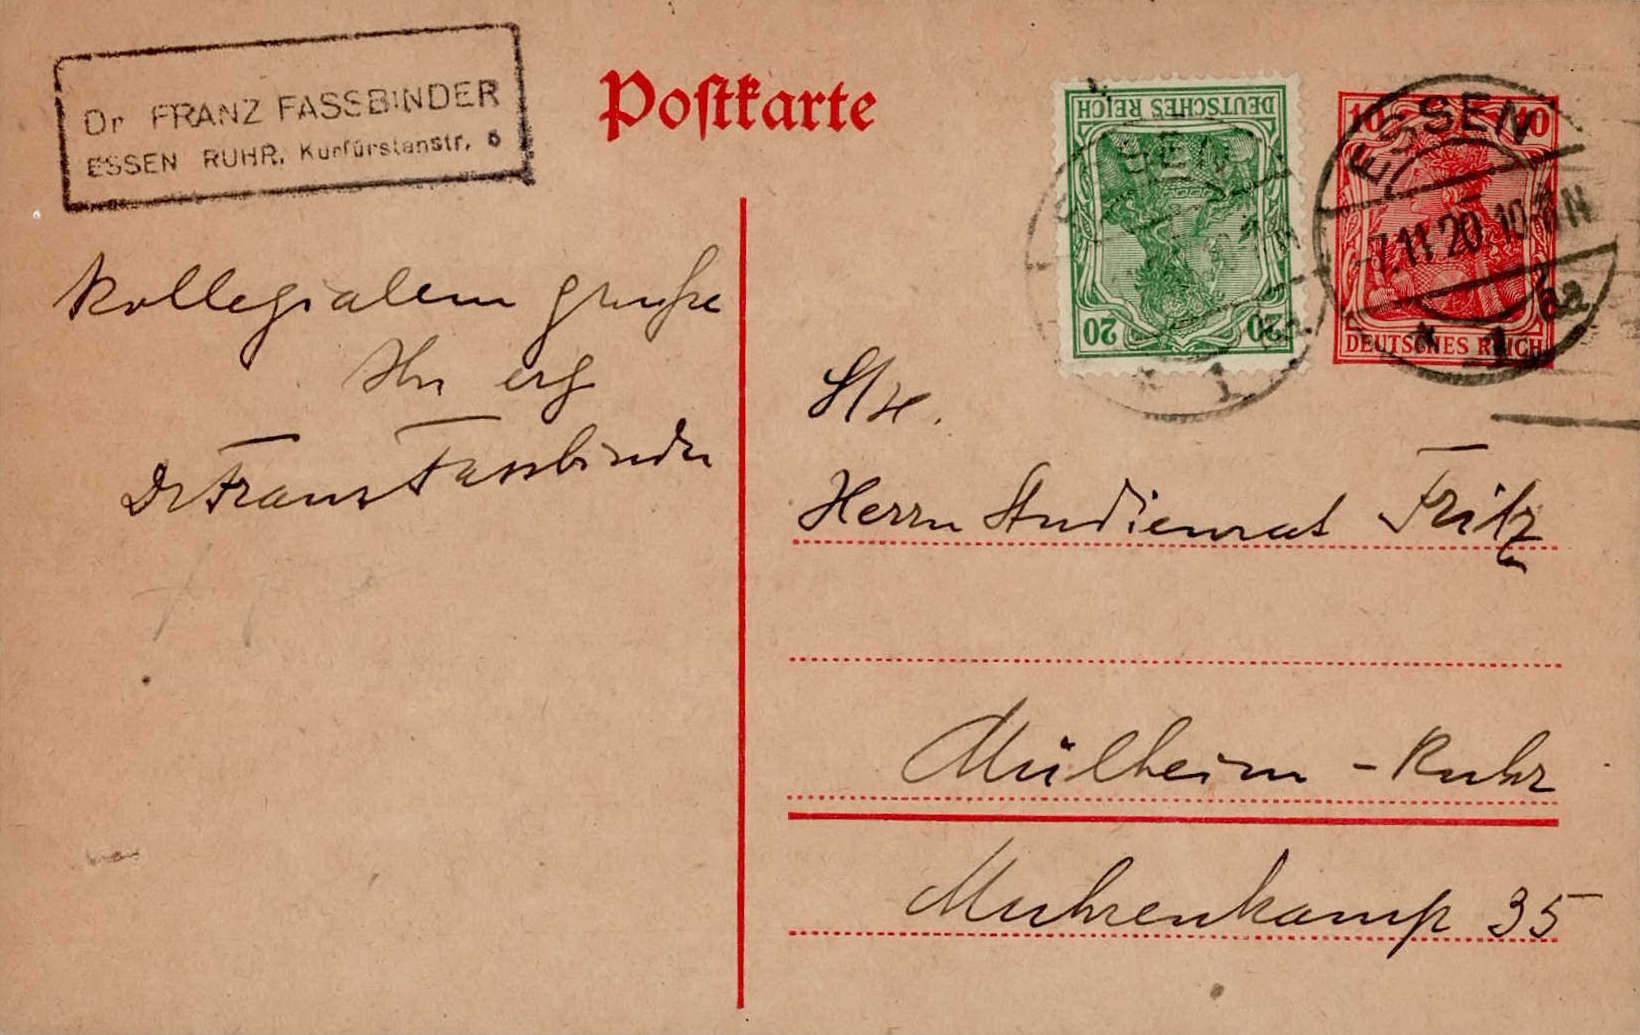 Dr FRANZ FASSBINDER
ESSEN RUHR, Kurfürstenstr. 6
Postkarte
DEUTSCHES REICH
20 20
10 10
DEUTSCHES REICH
ESSEN
-7.11.20.10-11N
* 1
ESSEN
* 1
kollegialem Gruße
Ihr erg
Dr Franz Fassbinder
Herrn Studienrat Fritz
Mülheim - Ruhr
Muhrenkamp 35